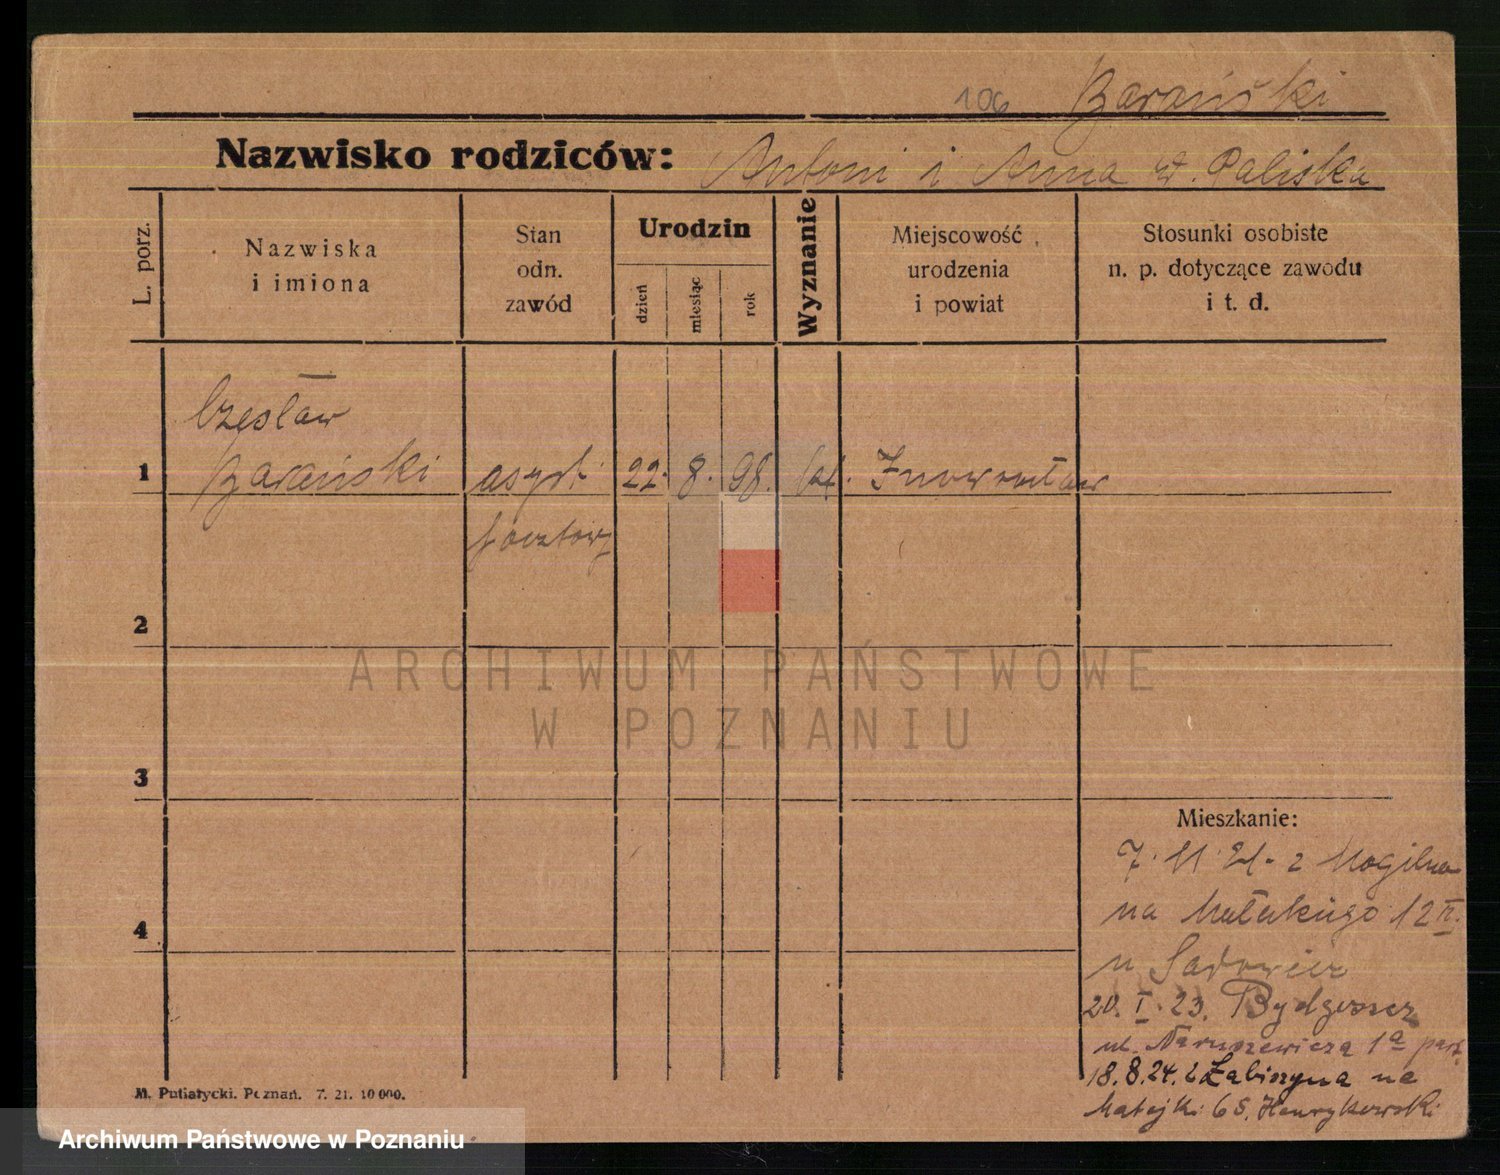 106 Barański
Nazwisko rodziców: Antoni i Anna z. Paliska
L. porz.
Nazwiska
i imiona
Stan
odn.
zawód
Urodzin
dzień
miesiąc
rok
Wyznanie
Miejscowość
urodzenia
i powiat
Stosunki osobiste
n. p. dotyczące zawodu
i t. d.
Czesław
1 Barański asyst. 22. 8. 98. kat. Inowrocław
pocztowy
2
ARCHIWUM PAŃSTWOWE
W POZNANIU
3
Mieszkanie:
7. 11 21. z Mogilna
na Małeckiego 12 II.
4
u Sadowicz
20. I. 23. Bydgoszcz
ul. Naruszewicza 1a part.
18. 8. 24. z Łabiszyna na
Matejki 6 S. Henrykowski
M. Putiatycki. Poznań. 7. 21. 10 000.
Archiwum Państwowe w Poznaniu